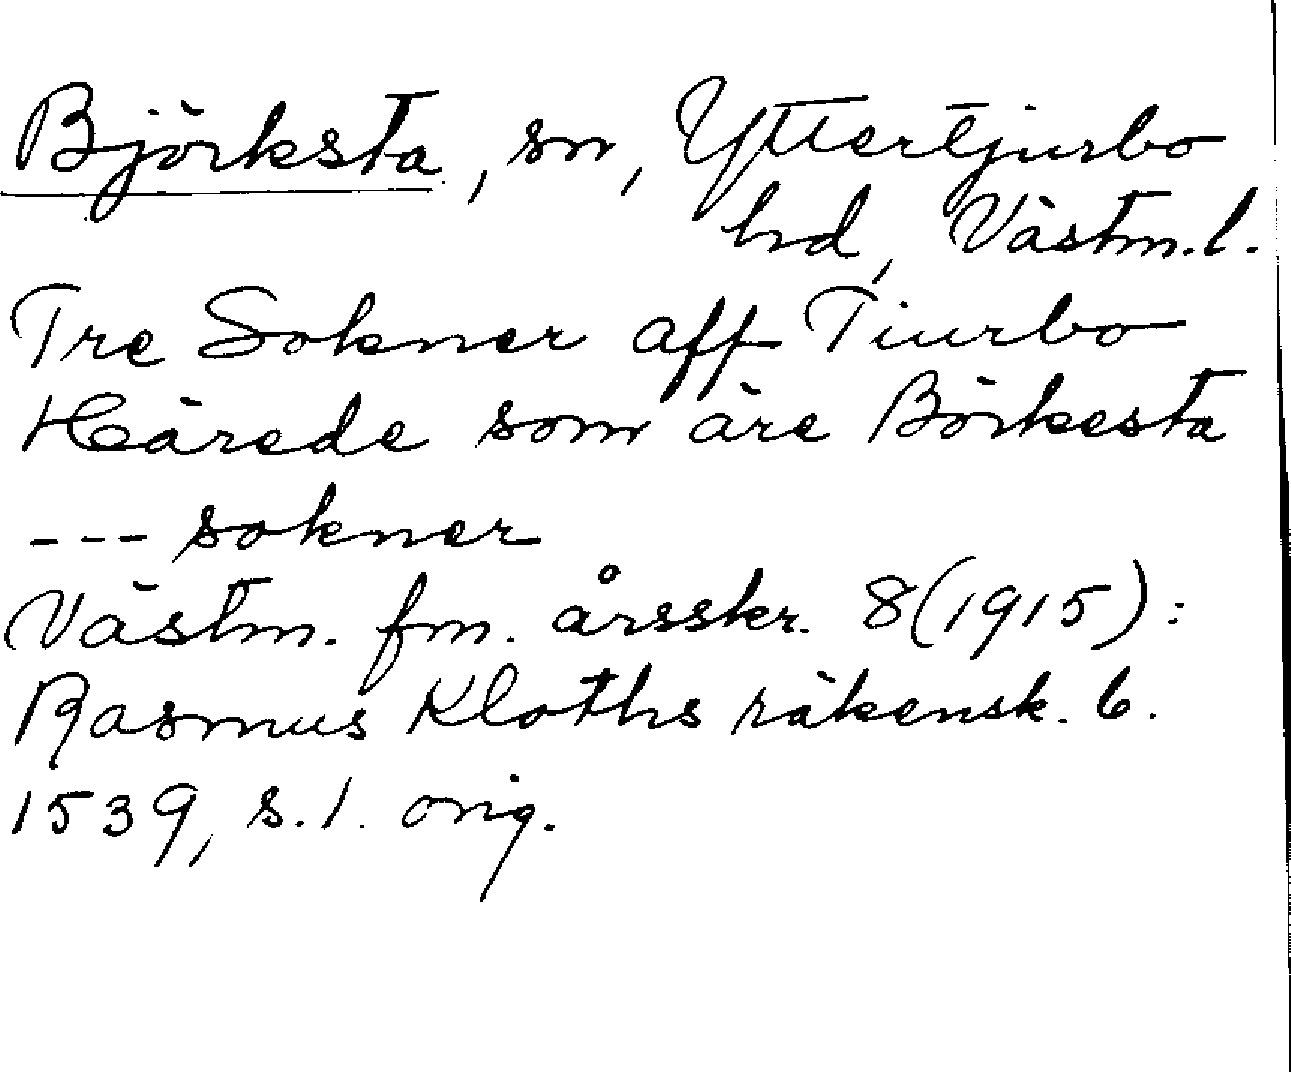 Björksta, sn, Yttertjurbo
hd, Västm.l.
Tre Sokner aff Tiurbo
Härede som äre Börkesta
--- sokner
Västm. fm. årsskr. 8(1915):
Rasmus Kloths räkensk. b.
1539, s.1. orig.